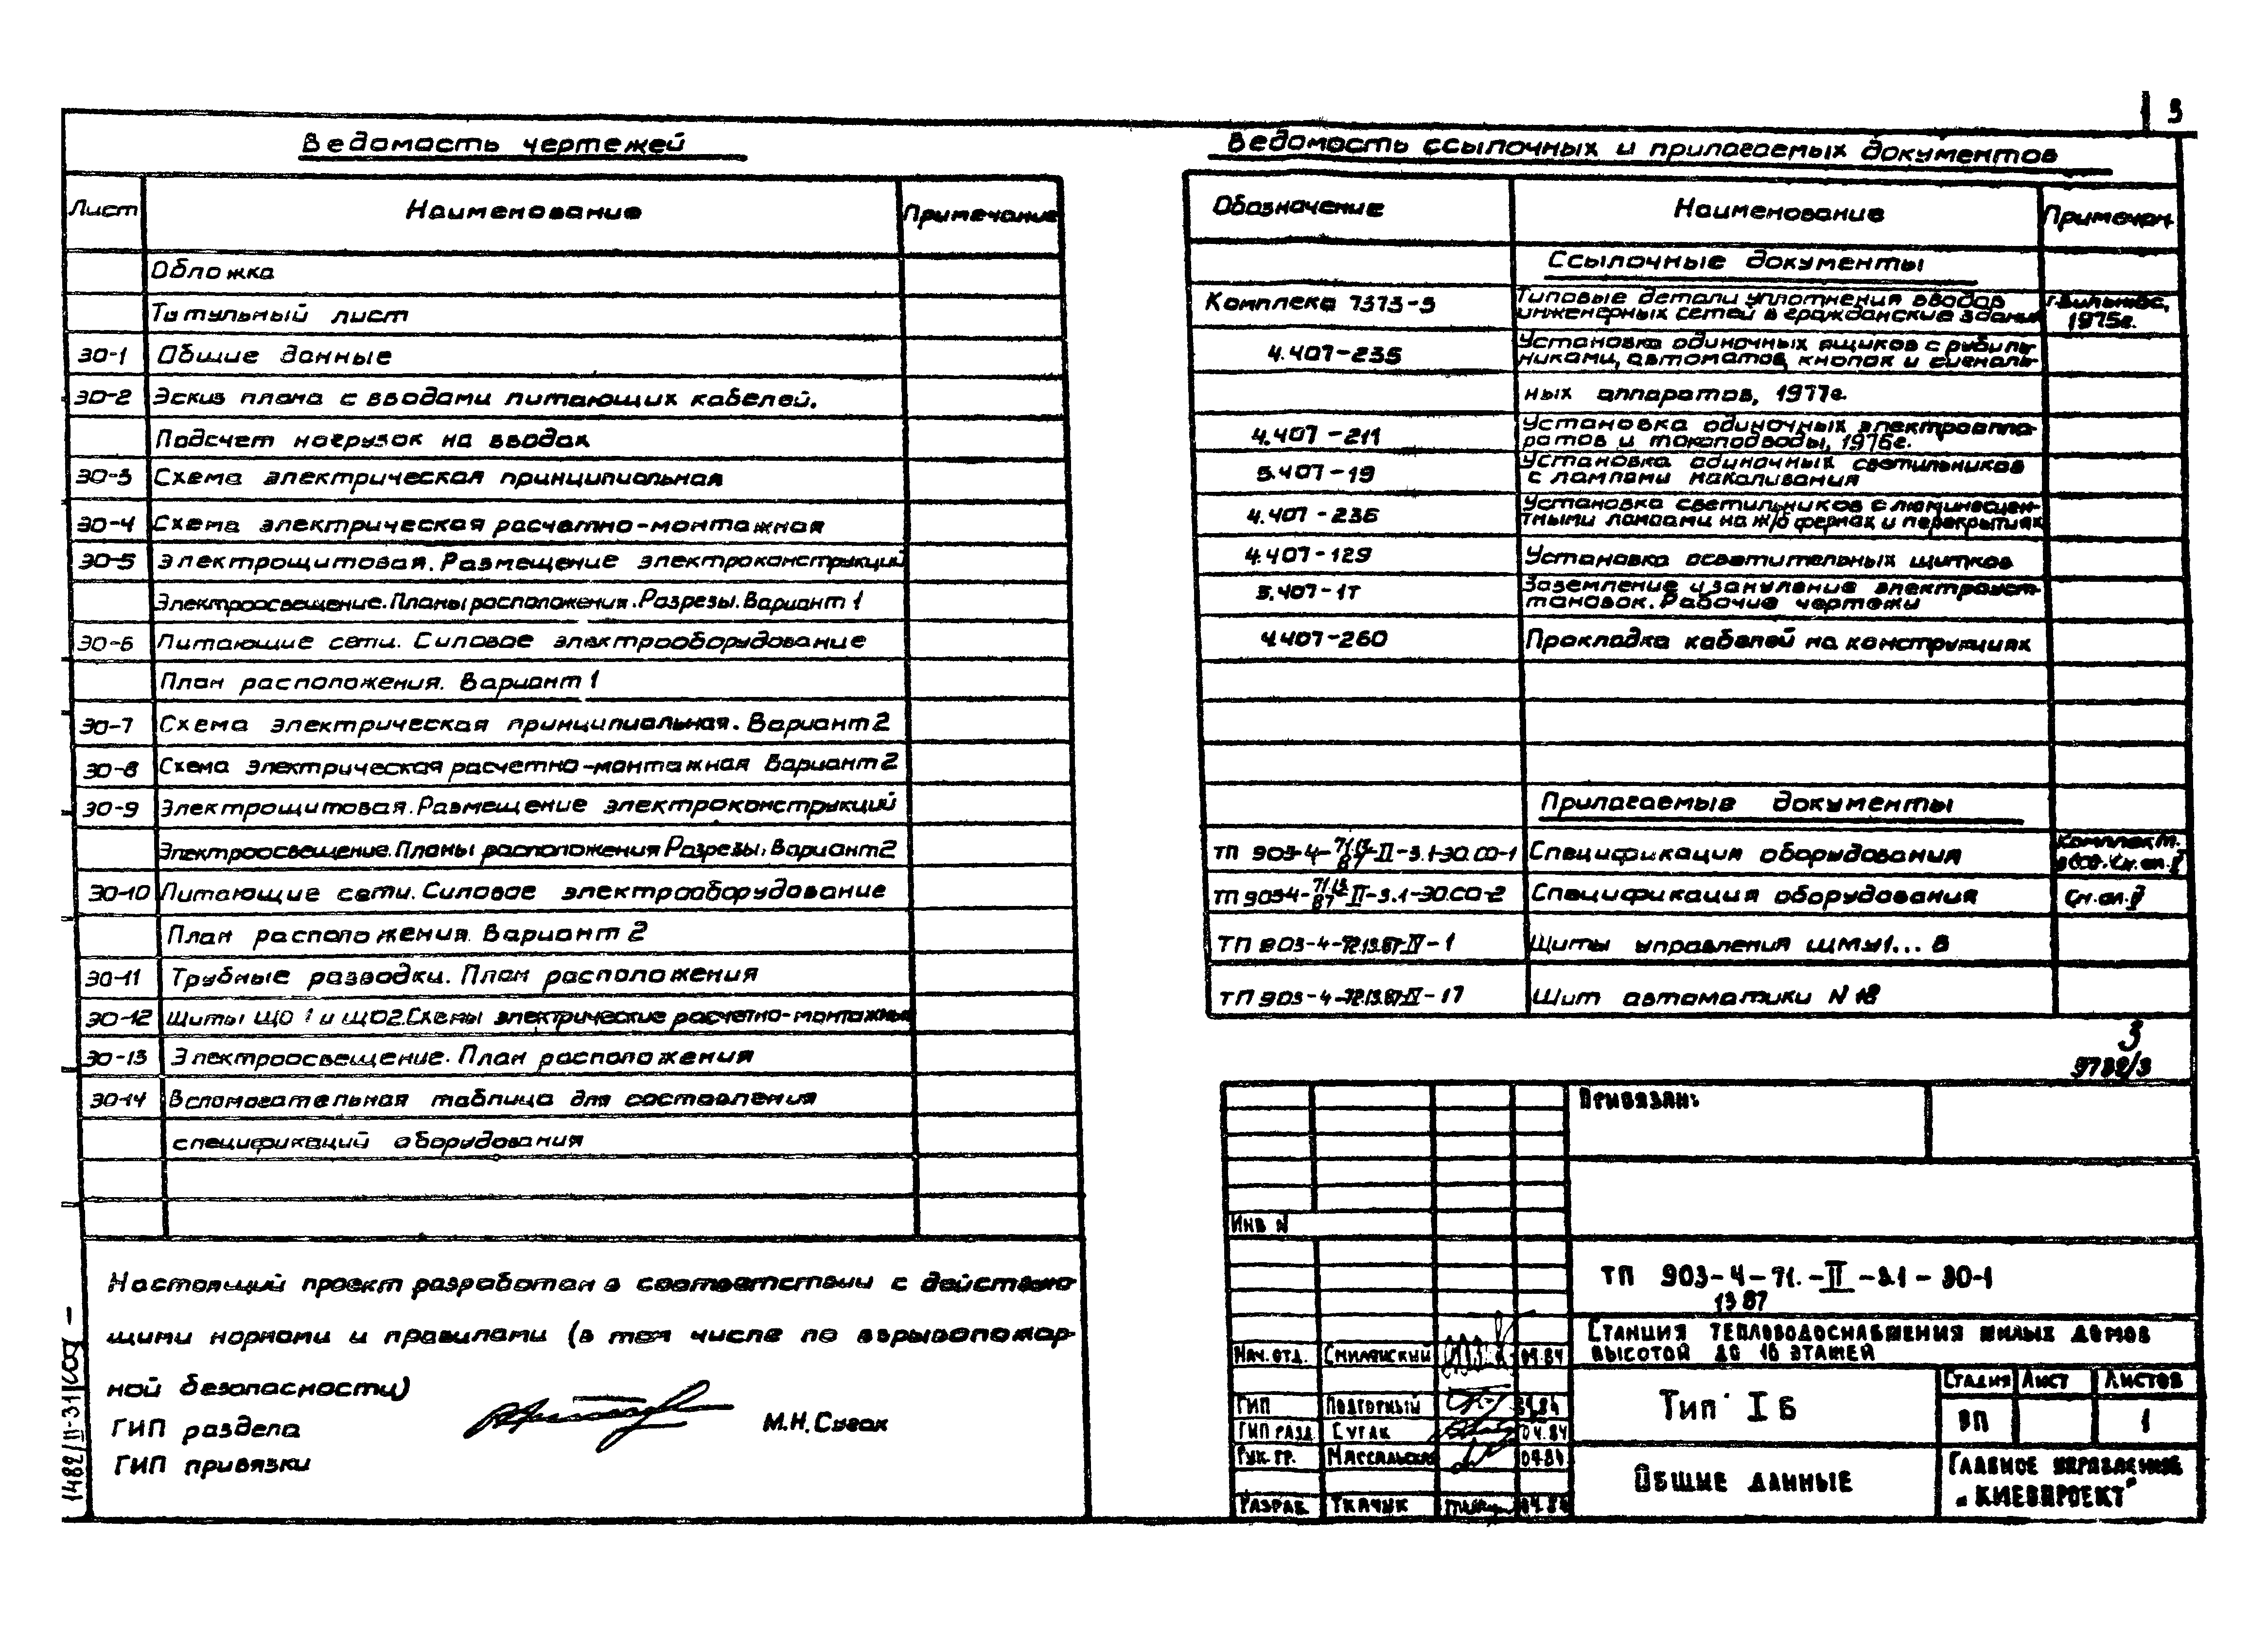 3
Ведомость чертежей
Лист Наименование Примечание
Обложка
Титульный лист
ЭО-1 Общие данные
ЭО-2 Эскиз плана с вводами питающих кабелей.
Подсчет нагрузок на вводах
ЭО-3 Схема электрическая принципиальная
ЭО-4 Схема электрическая расчетно-монтажная
ЭО-5 Электрощитовая. Размещение электроконструкций
Электроосвещение. Планы расположения. Разрезы. Вариант 1
ЭО-6 Питающие сети. Силовое электрооборудование
План расположения. Вариант 1
ЭО-7 Схема электрическая принципиальная. Вариант 2
ЭО-8 Схема электрическая расчетно-монтажная Вариант 2
ЭО-9 Электрощитовая. Размещение электроконструкций
Электроосвещение. Планы расположения Разрезы. Вариант 2
ЭО-10 Питающие сети. Силовое электрооборудование
План расположения. Вариант 2
ЭО-11 Трубные разводки. План расположения
ЭО-12 Щиты ЩО 1 и ЩО2. Схемы электрические расчетно-монтажные
ЭО-13 Электроосвещение. План расположения
ЭО-14 Вспомогательная таблица для составления
спецификаций оборудования
Настоящий проект разработан в соответствии с действую-
щими нормами и правилами (в том числе по взрывопожар-
ной безопасности)
ГИП раздела М.Н. Сугак
ГИП привязки
1482/II-31
Ведомость ссылочных и прилагаемых документов
Обозначение Наименование Примечан.
Ссылочные документы
Комплекс 7373-5 Типовые детали уплотнения вводов
инженерных сетей в гражданские здания
1975г.
4.407-235 Установка одиночных ящиков с рубиль-
никами, автоматов, кнопок и сигналь-
ных аппаратов, 1977г.
4.407-211 Установка одиночных электроаппа-
ратов и токоподводы, 1976г.
5.407-19 Установка одиночных светильников
с лампами накаливания
4.407-236 Установка светильников с люминесцен-
тными лампами на ж/б фермах и перекрытиях
4.407-129 Установка осветительных щитков
5.407-11 Заземление и зануление электроуст-
тановок. Рабочие чертежи
4.407-260 Прокладка кабелей на конструкциях
Прилагаемые документы
ТП 903-4-71.13.87-II-3.1-ЭО.СО-1 Спецификация оборудования Комплект.
ТП 903-4-71.13.87-II-3.1-ЭО.СО-2 Спецификация оборудования См. ал. V
ТП 903-4-72.13.87-IV-1 Щиты управления ЩМУ1...8
ТП 903-4-72.13.87-IV-17 Щит автоматики N 18
3
9782/3
Привязан:
Инв N
ТП 903-4-71.-II-3.1-ЭО-1
13 87
Станция тепловодоснабжения жилых домов
высотой до 16 этажей
Нач. отд. Смилянский 04.84
ГИП Подгорный 04.84
ГИП разд Сугак 04.84
Рук. гр. Массальская 04.84
Разраб. Ткачук 04.84
Тип IБ
Стадия Лист Листов
РП 1
Общие данные
Главное управление
„Киевпроект"